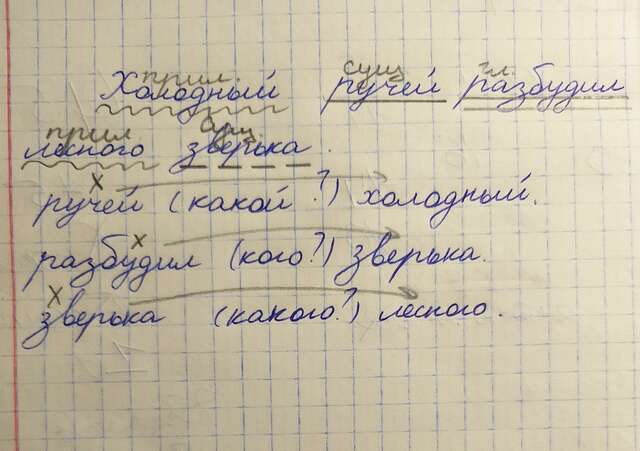 прил. сущ гл.
Холодный ручей разбудил
прил сущ
лесного зверька.
х
ручей (какой?) холодный.
х
разбудил (кого?) зверька.
х
зверька (какого?) лесного.